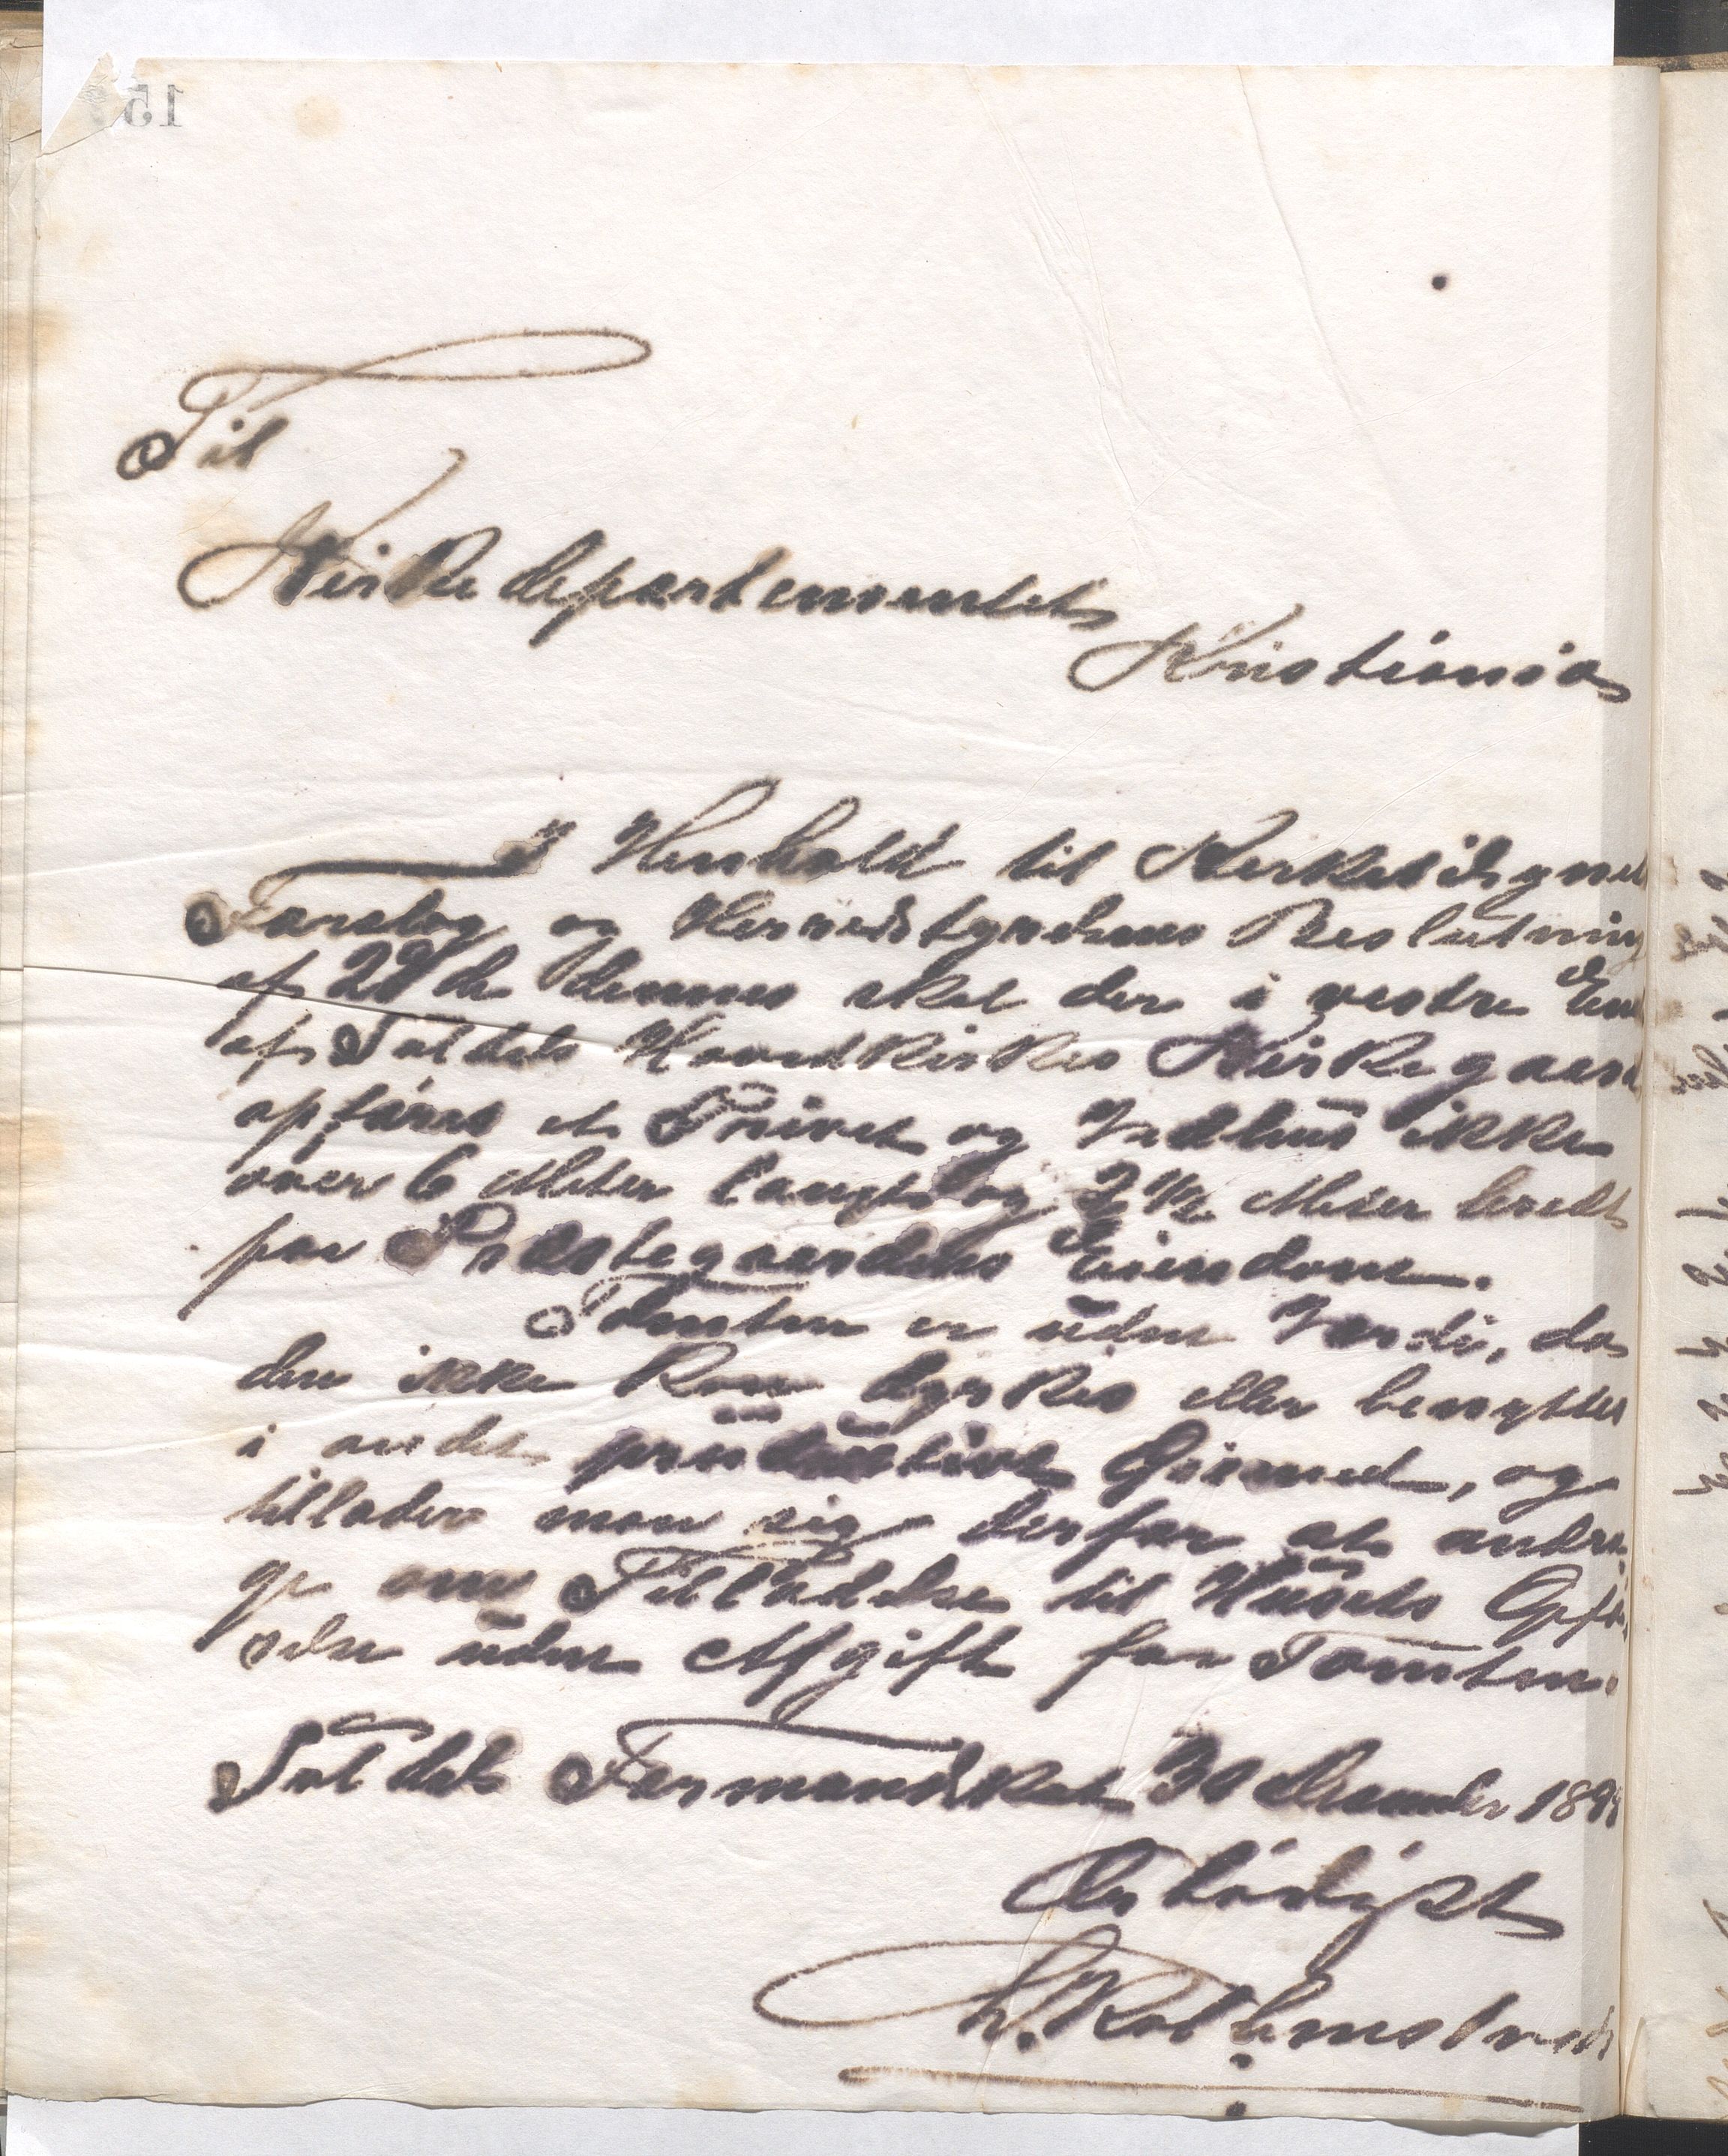 15
Til
Kirkedepartementet
Kristiania
I Henhold til Kirketilsynets
Forslag og Herredstyrelsens Beslutning
af 28de dennes skal der i vestre Ende
af Saltdals Hovedkirkes Kirkegaard
opføres et Privet og Vedhus ikke
over 6 Meter langt og 2 1/2 Meter bredt
paa Præstegaardens Eiendom.
Tomten er uden Værdi, da
den ikke kan dyrkes eller benyttes
i andet produktivt Øiemed, og
tillader man sig derfor at andra-
ge om Tilladelse til Husets Opfø-
relse uden Afgift for Tomten.
Formandskab 30 December 189
Ærbødigst